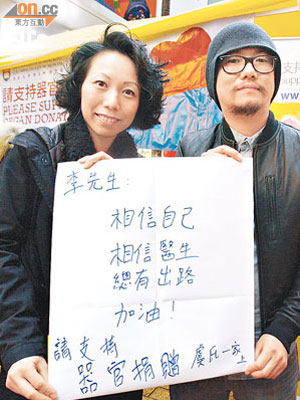 on.cc
東方互動
請支持器官
PLEASE SUP
ORGAN DONAT
www.
李先生：
相信自己
相信醫生
總有出路
加油！
請支持
器官捐贈
虞氏一家上